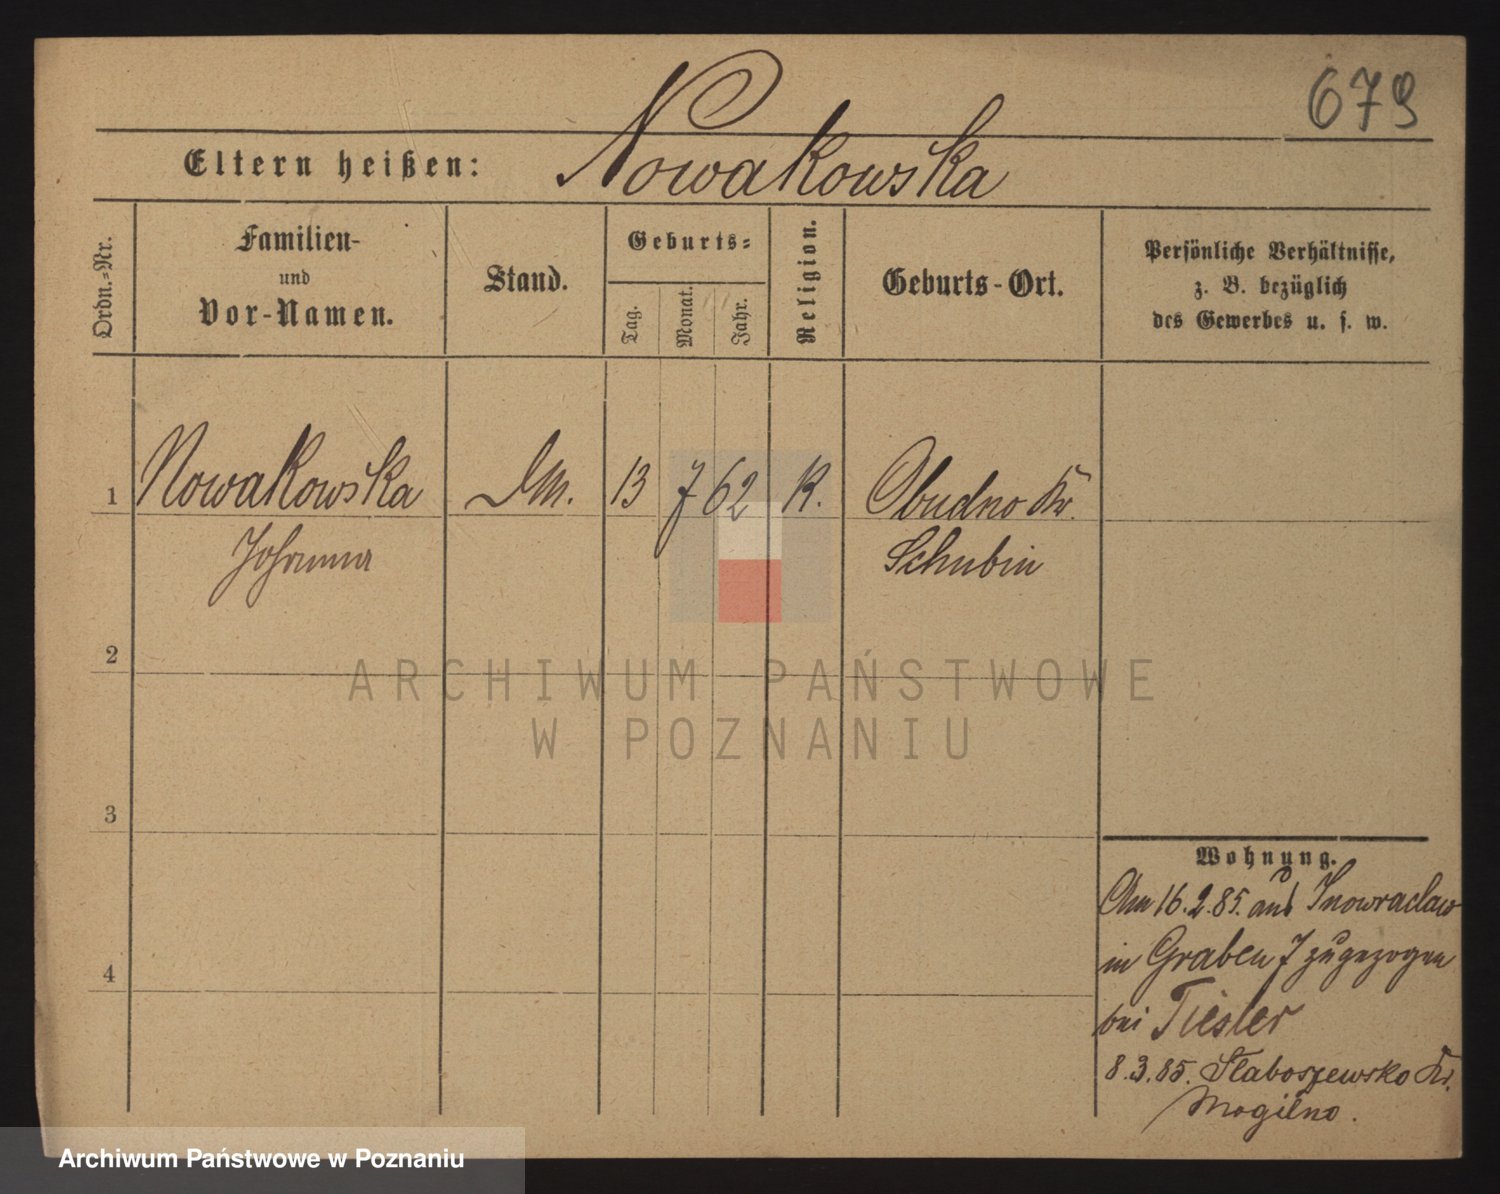 679
Eltern heißen: Nowakowska
Ordn.-Nr.
Familien-
und
Vor-Namen.
Stand.
Geburts-
Tag.
Monat.
Jahr.
Religion.
Geburts-Ort.
Persönliche Verhältnisse,
z. B. bezüglich
des Gewerbes u. s. w.
1 Nowakowska 13 7 62 K. Obudno Kr.
Johanna Schubin
2
3
4
Wohnung.
Am 16.2.85. aus Inowraclaw
in Graben 7 zugezogen
bei Tiesler
8.3.85. Slaboszewsko Kr.
Mogilno.
ARCHIWUM PAŃSTWOWE
W POZNANIU
Archiwum Państwowe w Poznaniu